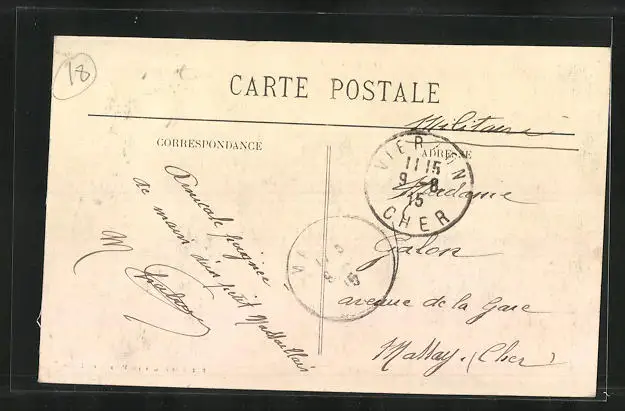 18
CARTE POSTALE
Militaire
CORRESPONDANCE
ADRESSE
VIERZON
11 15
9 - 8
15
CHER
Amicale poignée
de main d'un petit Massaillais
M
Madame
Galon
avenue de la Gare
Massay. (Cher)